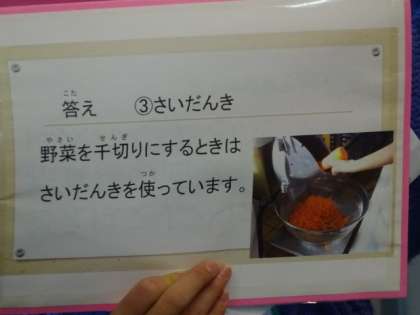 答え　③さいだんき
野菜を千切りにするときは
さいだんきを使っています。